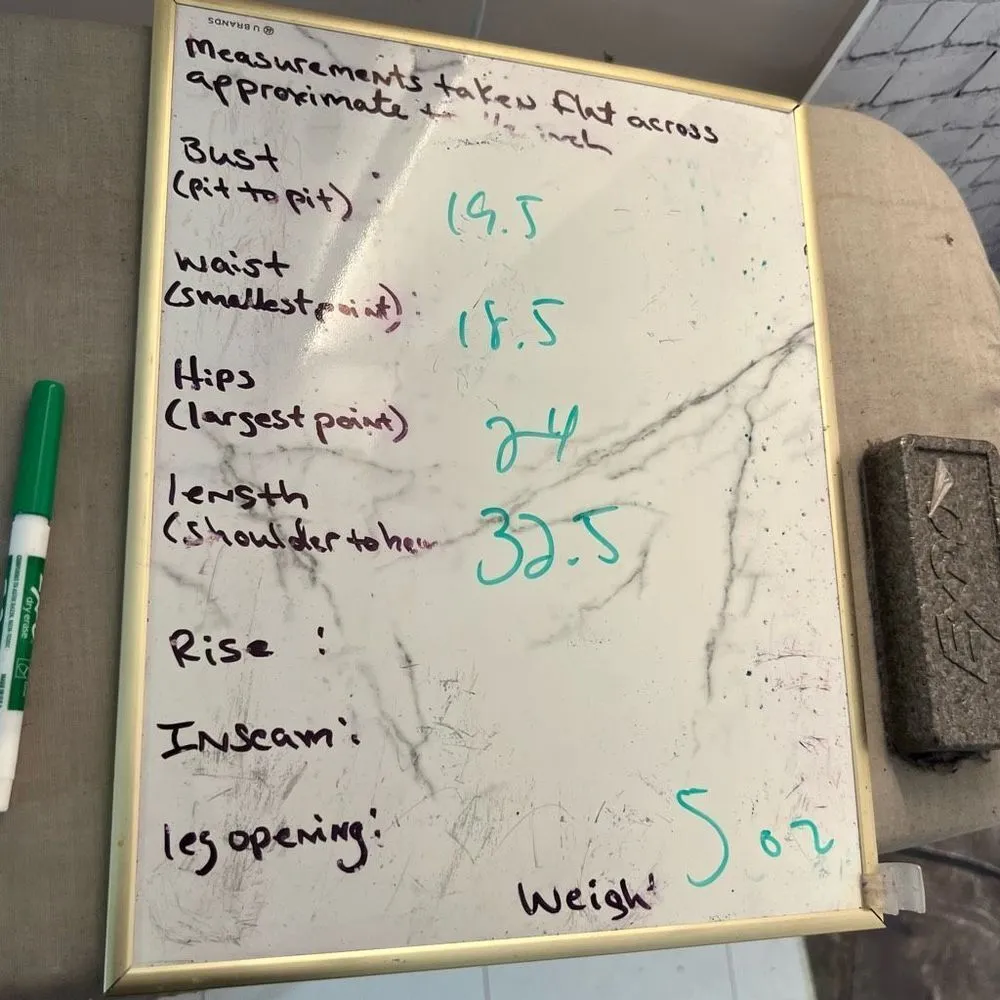 U BRANDS
Measurements taken flat across
approximate to 1/2 inch
Bust
(pit to pit) :
19.5
waist
(smallest point) :
18.5
Hips
(largest point)
24
length
(shoulder to hem
32.5
Rise :
Inseam:
leg opening:
5 oz
Weigh
EXPO
dry erase